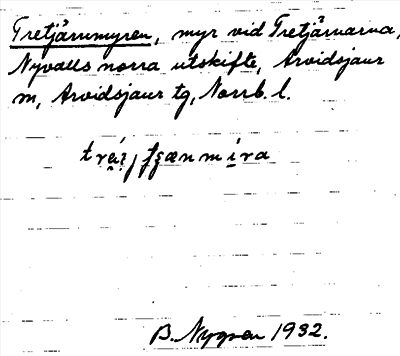 Tretjärnmyren, myr vid Tretjärnarna,
Nyvalls norra utskifte, Arvidsjaur
m, Arvidsjaur tg, Norrb. l.
B. Nygren 1932.